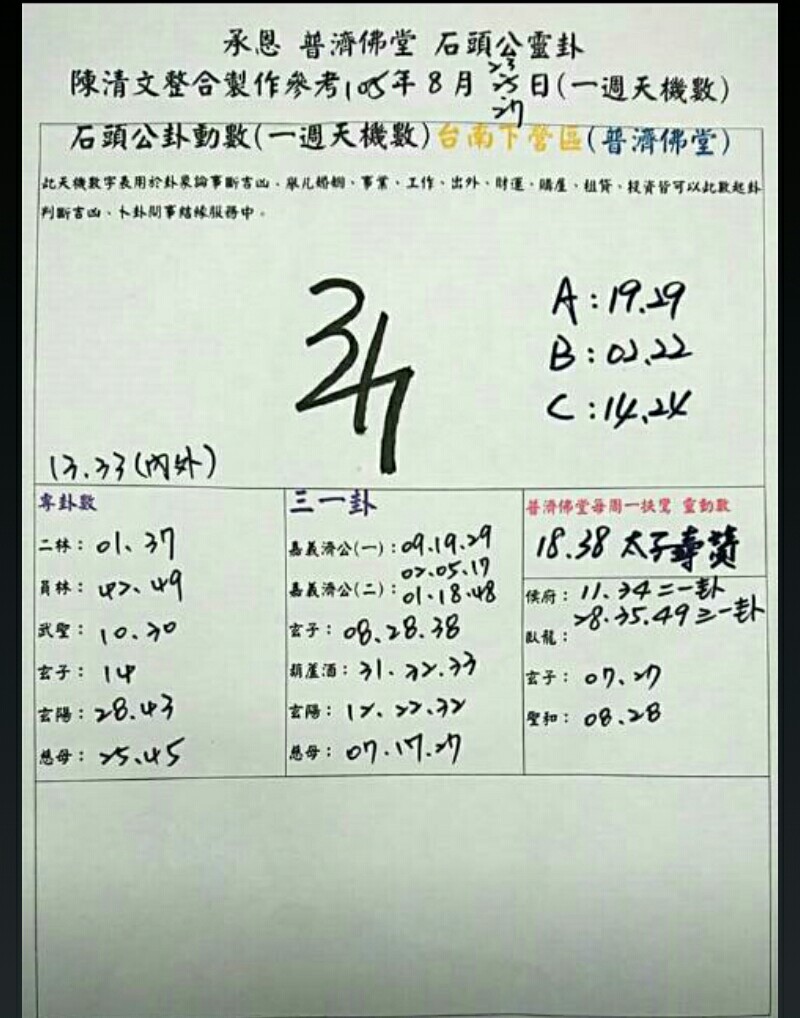 承恩 普濟佛堂 石頭公靈卦
陳清文整合製作參考105年8月23 25 27日(一週天機數)
石頭公卦動數(一週天機數)台南下營區(普濟佛堂)
此天機數字表用於卦象論事斷吉凶、舉凡婚姻、事業、工作、出外、財運、購屋、租賃、投資皆可以此數起卦
判斷吉凶、卜卦問事結緣服務中。
A:19.29
B:02.22
C:14.24
13.33(內外)
專卦數
二林：01.37
員林：42.49
武聖：10.30
玄子：14
玄陽：28.43
慈母：25.45
三一卦
嘉義濟公(一)：09.19.29
02.05.17
嘉義濟公(二)：01.18.48
玄子：08.28.38
葫蘆酒：31.32.33
玄陽：12.22.32
慈母：07.17.27
普濟佛堂每周一扶鸞 靈動數
18.38 太子壽贊
侯府：11.34二一卦
28.35.49三一卦
臥龍：
玄子：07.27
聖和：08.28